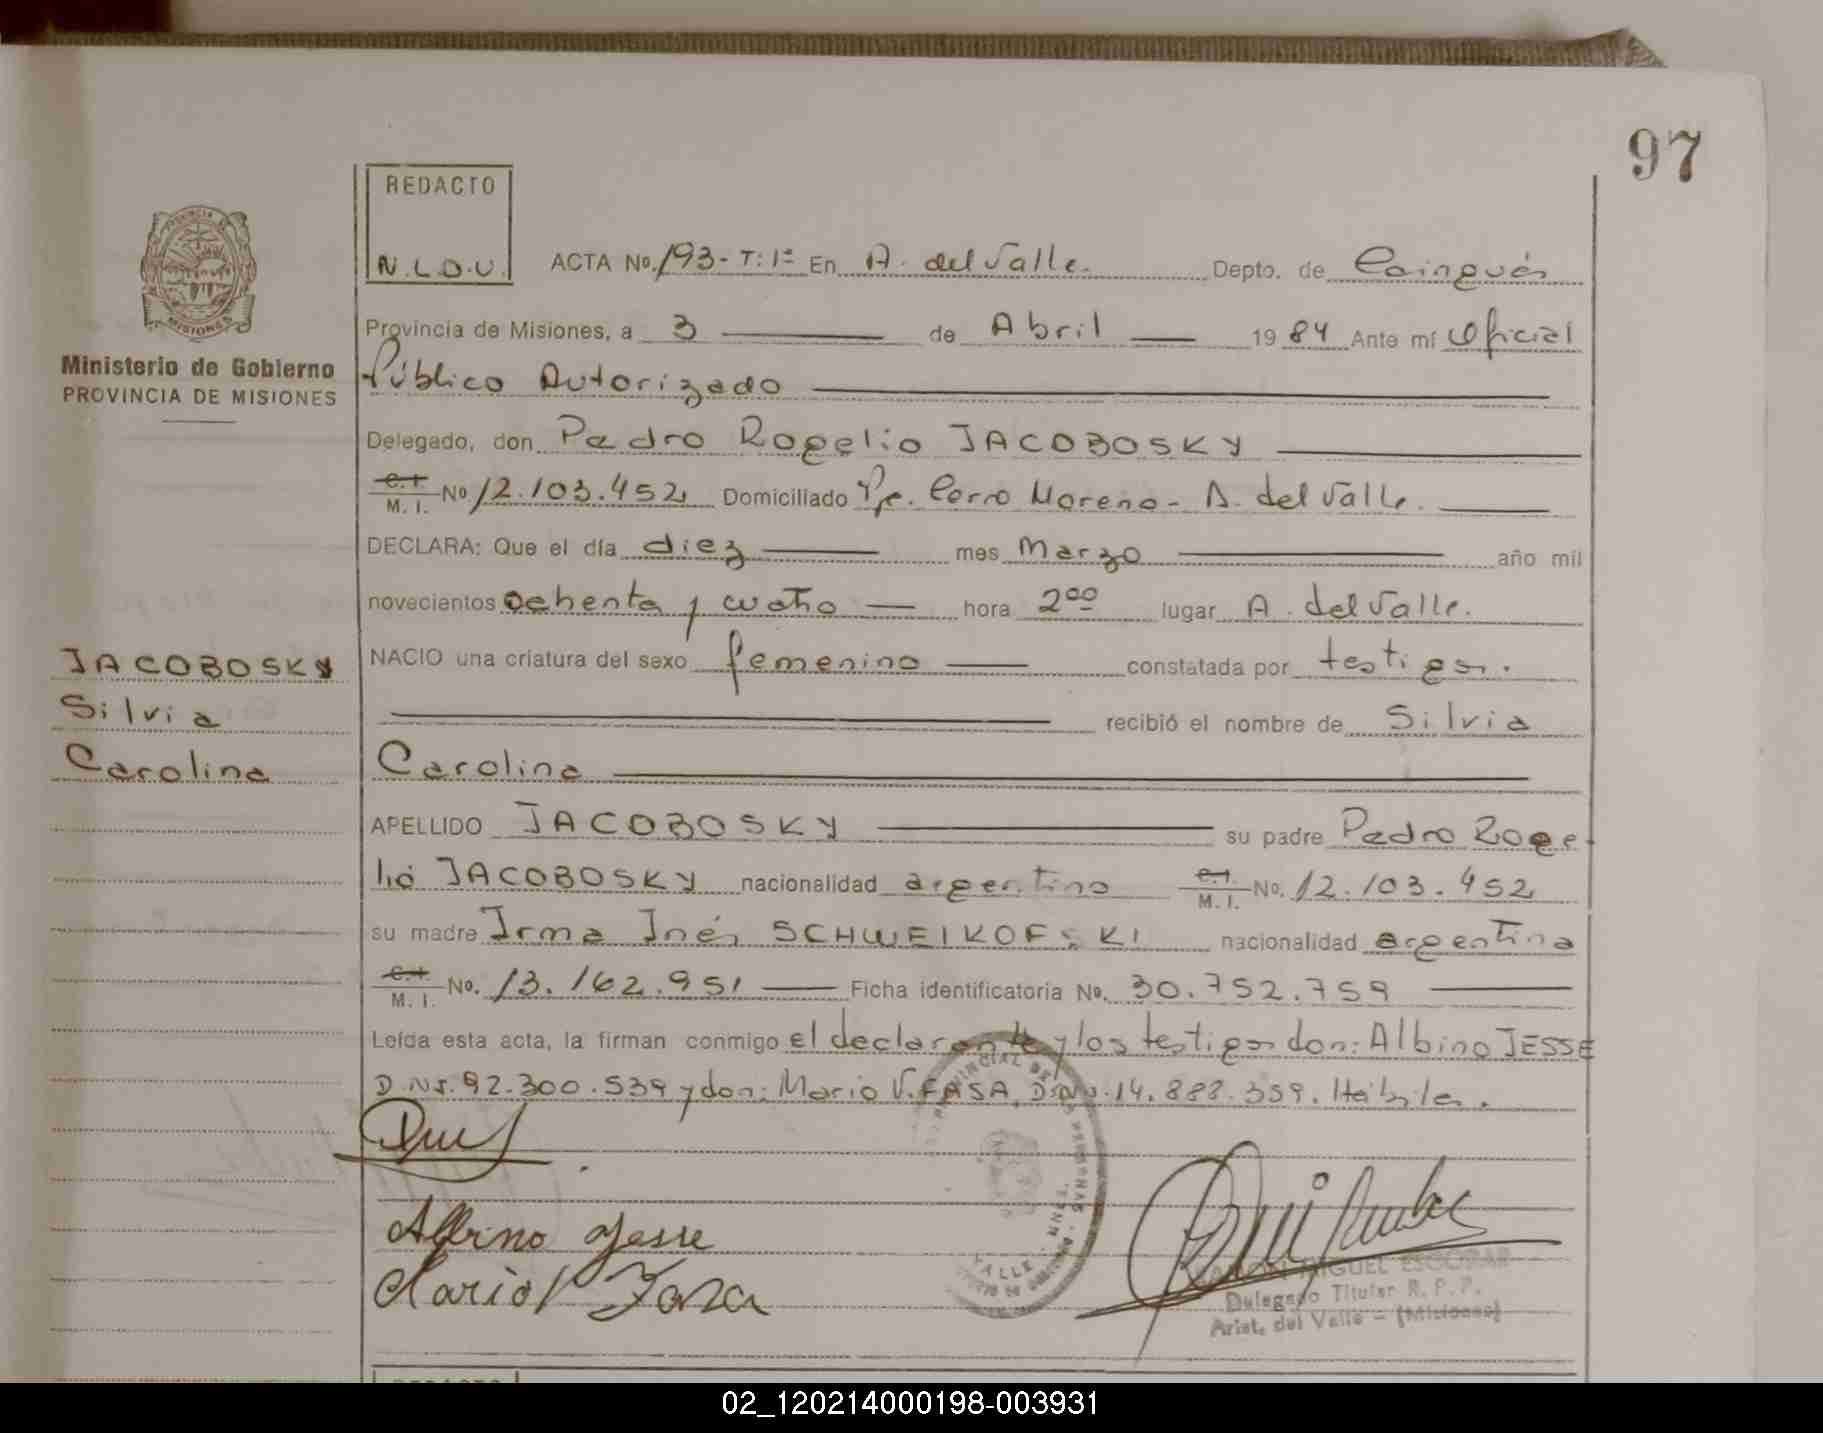 97
REDACTO
N.L.D.U.
ACTA No. 193-T:1º En A. del Valle. Depto. de Cainguás
Provincia de Misiones, a 3 de Abril 1984 Ante mí Oficial
Público Autorizado
Ministerio de Gobierno
PROVINCIA DE MISIONES
Delegado, don Pedro Rogelio JACOBOSKY
C.I. M.I. No 12.103.452 Domiciliado Pje. Cerro Moreno - A. del Valle.
DECLARA: Que el día diez mes Marzo año mil
novecientos ochenta y cuatro hora 2⁰⁰ lugar A. del Valle.
NACIO una criatura del sexo femenino constatada por testigos.
recibió el nombre de Silvia
Carolina
JACOBOSKY
Silvia
Carolina
APELLIDO JACOBOSKY su padre Pedro Roge
lio JACOBOSKY nacionalidad argentino C.I. M.I. No. 12.103.452
su madre Irma Inés SCHWEIKOFSKI nacionalidad argentina
C.I. M.I. No. 13.162.951 Ficha identificatoria No. 30.752.759
Leída esta acta, la firman conmigo el declarante y los testigos don: Albino JESSE
D.N.I. 92.300.539 y don: Mario V. FASA, D.N.I. 14.888.359. Hábiles.
Albino Jesse
Mario V Fasa
RAMON MIGUEL ESCOBAR
Delegado Titular R. P. P.
Arist. del Valle - (Misiones)
REDACTO
02_120214000198-003931